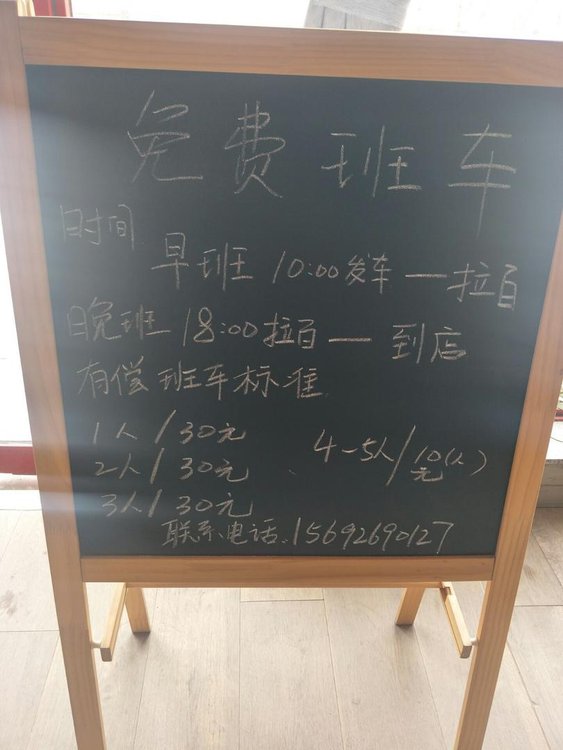 免费班车
时间
早班 10:00发车一拉百
晚班 18:00拉百一到店
有偿班车标准
1人/30元
2人/30元
3人/30元
4-5人/10元(人)
联系电话.15692690127